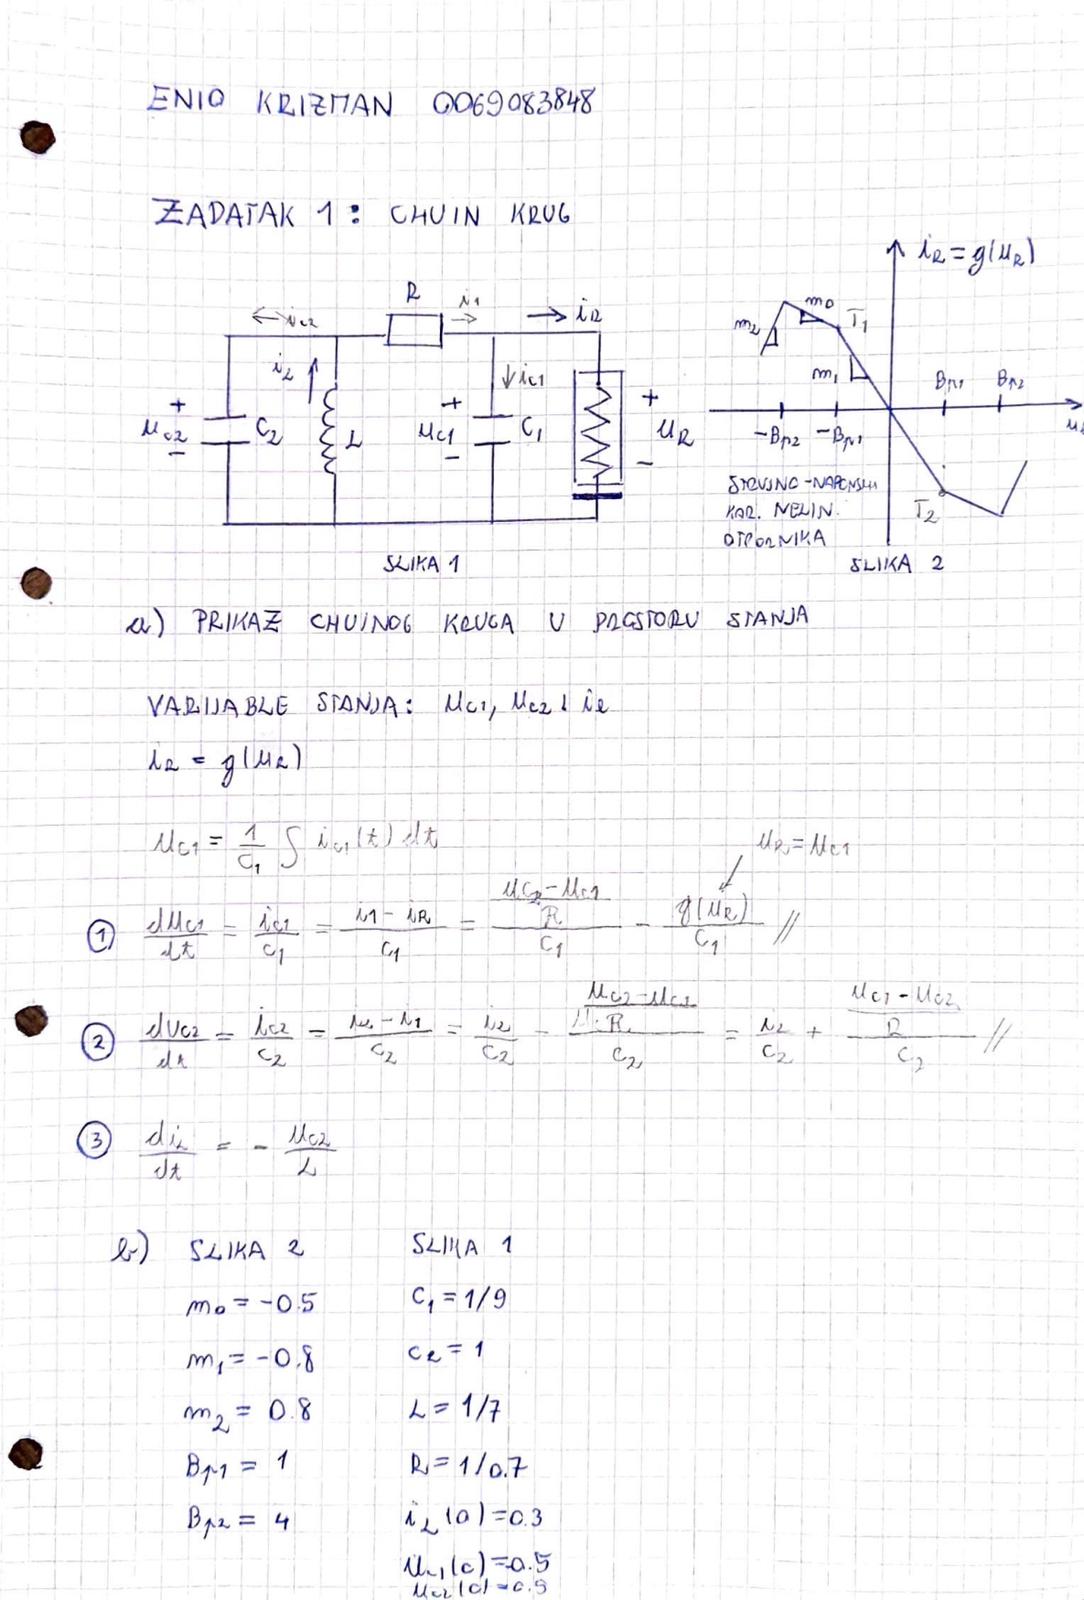 ENIO KRIZMAN 0069083848
ZADATAK 1: CHUIN KRUG
R
i₁
i_R
i_C2
i_L
i_C1
+
u_C2
-
C₂
L
+
u_C1
-
C₁
+
u_R
-
SLIKA 1
i_R = g(u_R)
m₂
m₀
T₁
m₁
B_p1
B_p2
-B_p2
-B_p1
STRUJNO-NAPONSKA
KAR. NELIN.
OTPORNIKA
T₂
SLIKA 2
a) PRIKAZ CHUINOG KRUGA U PROSTORU STANJA
VARIJABLE STANJA: u_C1, u_C2 i i_L
i_R = g(u_R)
u_C1 = 1/C₁ ∫ i_C1(t) dt
u_R = u_C1
① du_C1/dt = i_C1/C₁ = (i1 - i_R)/C₁ = ((u_C2 - u_C1)/R)/C₁ - g(u_R)/C₁ //
② du_C2/dt = i_C2/C₂ = (i_L - i_1)/C₂ = i_L/C₂ - ((u_C2 - u_C1)/R)/C₂ = i_L/C₂ + ((u_C1 - u_C2)/R)/C₂ //
③ di_L/dt = - u_C2/L
b) SLIKA 2 SLIKA 1
m₀ = -0.5 C₁ = 1/9
m₁ = -0.8 C₂ = 1
m₂ = 0.8 L = 1/7
B_p1 = 1 R = 1/0.7
B_p2 = 4 i_L(0) = 0.3
u_C1(0) = 0.5